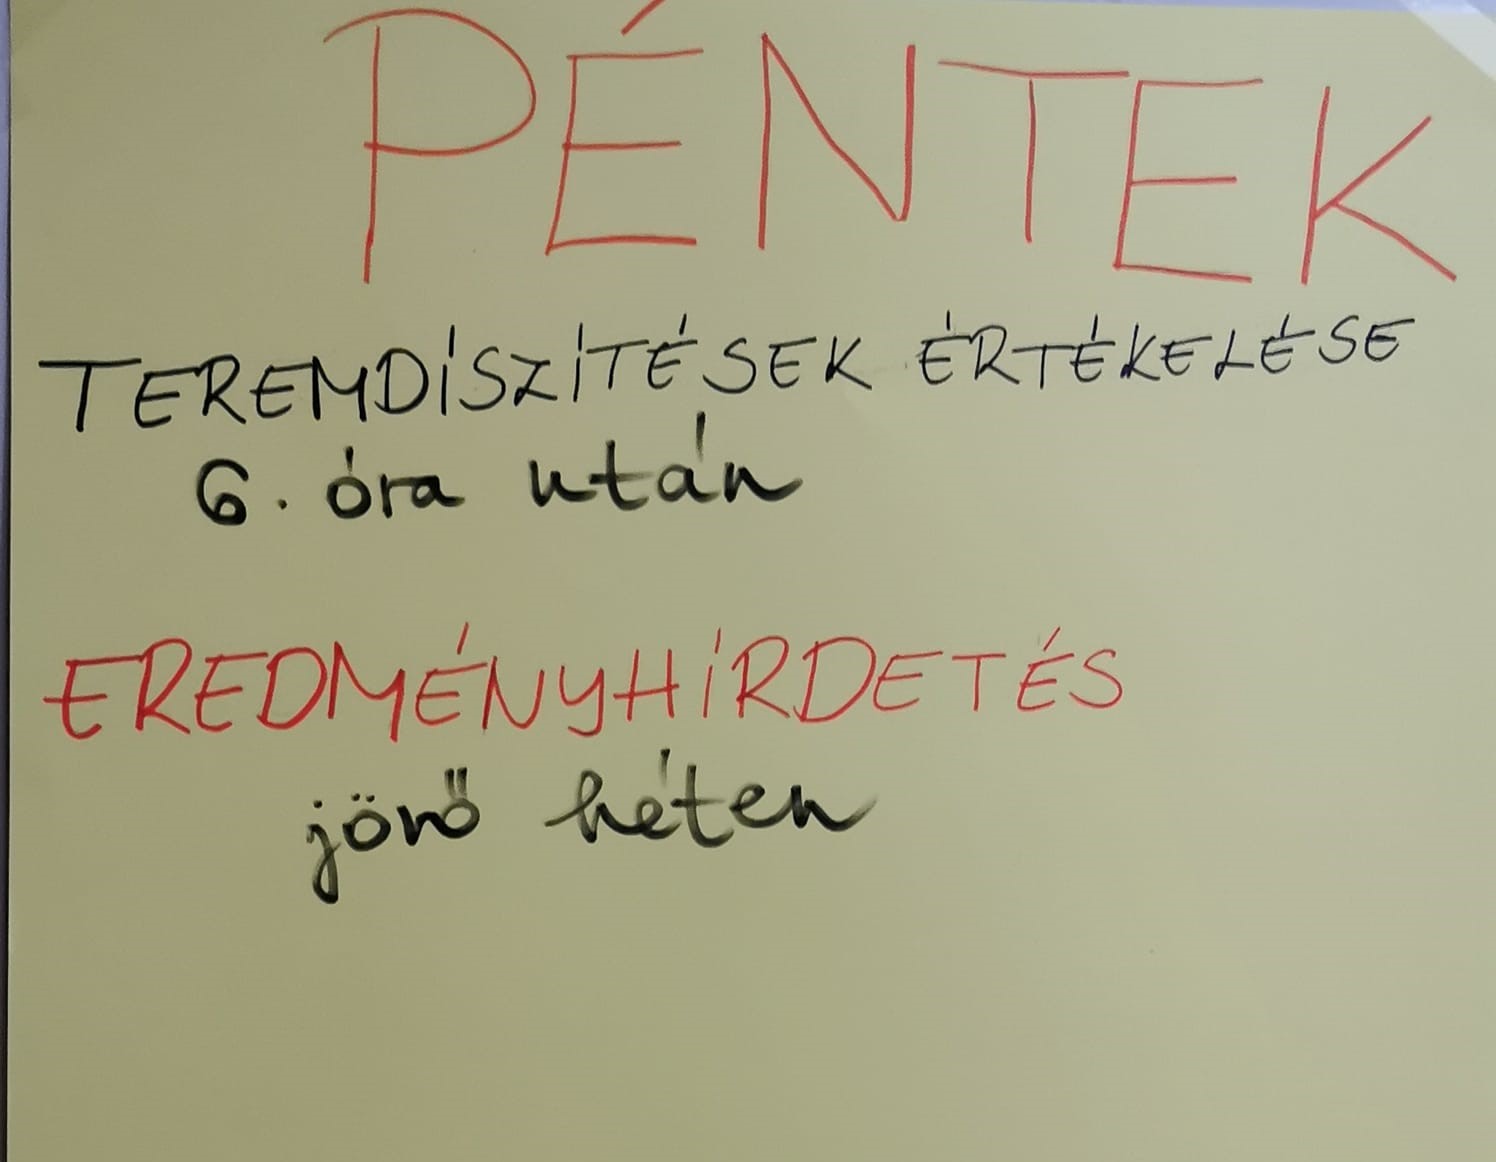 PÉNTEK
TEREMDÍSZÍTÉSEK ÉRTÉKELÉSE
6. óra után
EREDMÉNYHÍRDETÉS
jönő héten